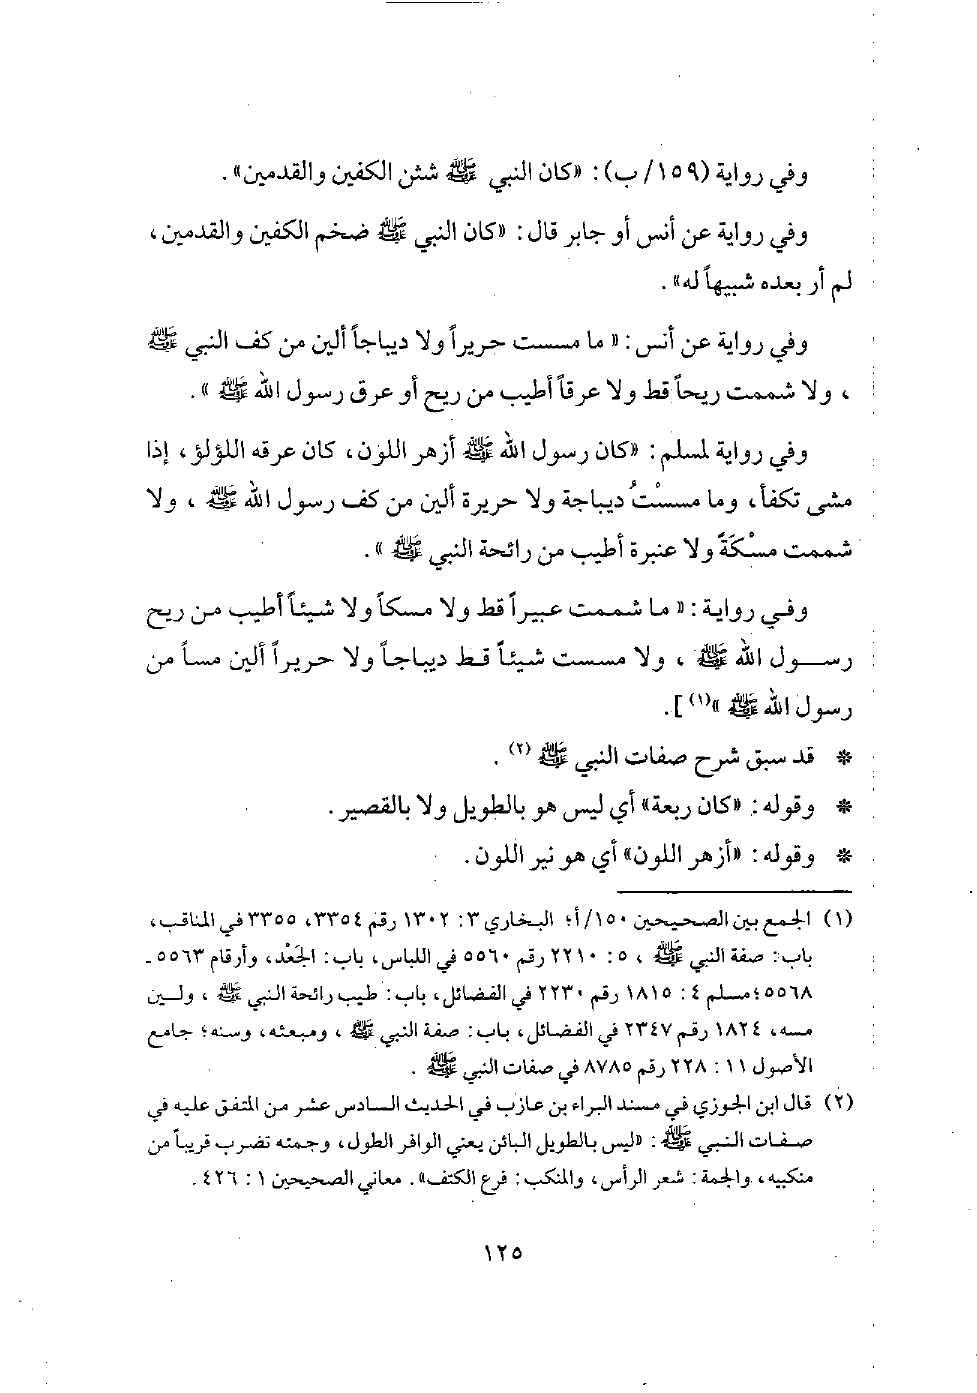 وفي رواية (١٥٩/ ب): «كان النبي ﷺ شثن الكفين والقدمين».
وفي رواية عن أنس أو جابر قال: «كان النبي ﷺ ضخم الكفين والقدمين،
لم أر بعده شبيهاً له».
وفي رواية عن أنس: « ما مسست حريراً ولا ديباجاً ألين من كف النبي ﷺ
، ولا شممت ريحاً قط ولا عرقاً أطيب من ريح أو عرق رسول الله ﷺ ».
وفي رواية لمسلم: «كان رسول الله ﷺ أزهر اللون، كان عرقه اللؤلؤ، إذا
مشى تكفأ، وما مسسْتُ ديباجة ولا حريرة ألين من كف رسول الله ﷺ ، ولا
شممت مسْكَةً ولا عنبرة أطيب من رائحة النبي ﷺ ».
وفي رواية: « ما شممت عبيراً قط ولا مسكاً ولا شيئاً أطيب من ريح
رسول الله ﷺ ، ولا مسست شيئاً قط ديباجاً ولا حريراً ألين مساً من
رسول الله ﷺ »(١)].
* قد سبق شرح صفات النبي ﷺ (٢).
* وقوله: «كان ربعة» أي ليس هو بالطويل ولا بالقصير.
* وقوله: «أزهر اللون» أي هو نير اللون.
(١) الجمع بين الصحيحين ١٥٠/أ؛ البخاري ٣: ١٣٠٢ رقم ٣٣٥٤، ٣٣٥٥ في المناقب،
باب: صفة النبي ﷺ ، ٥: ٢٢١٠ رقم ٥٥٦٠ في اللباس، باب: الجَعْد، وأرقام ٥٥٦٣ ـ
٥٥٦٨؛ مسلم ٤: ١٨١٥ رقم ٢٢٣٠ في الفضائل، باب: طيب رائحة النبي ﷺ ، ولين
مسه، ١٨٢٤ رقم ٢٣٤٧ في الفضائل، باب: صفة النبي ﷺ ، ومبعثه، وسنه؛ جامع
الأصول ١١: ٢٢٨ رقم ٨٧٨٥ في صفات النبي ﷺ .
(٢) قال ابن الجوزي في مسند البراء بن عازب في الحديث السادس عشر من المتفق عليه في
صفات النبي ﷺ : «ليس بالطويل البائن يعني الوافر الطول، وجمته تضرب قريباً من
منكبيه، والجمة: شعر الرأس، والمنكب: فرع الكتف». معاني الصحيحين ١: ٤٢٦.
١٢٥